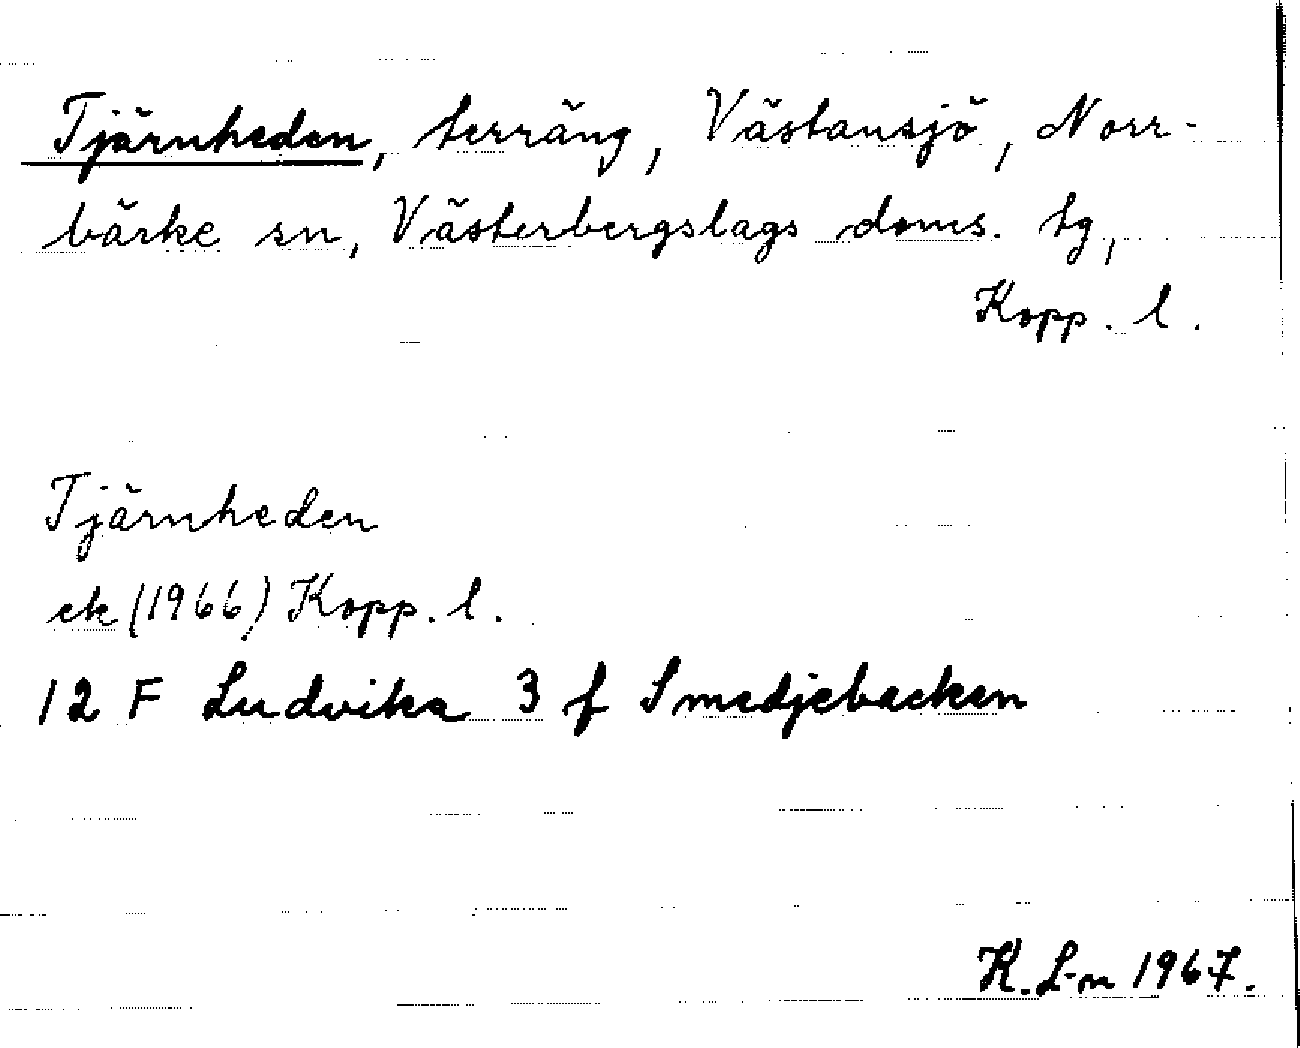 Tjärnheden, terräng, Västansjö, Norr-
bärke sn, Västerbergslags doms. tg,
Kopp. l.
Tjärnheden
ek (1966) Kopp. l.
12 F Ludvika 3 f Smedjebacken
K. L-n 1967.